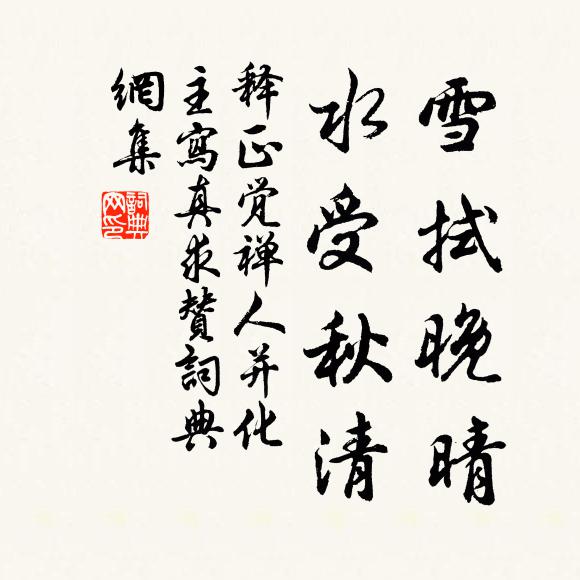 雪拭晚晴
水受秋清
释正觉禅人并化
主寫真求贊詞典
網集
詞典
网印